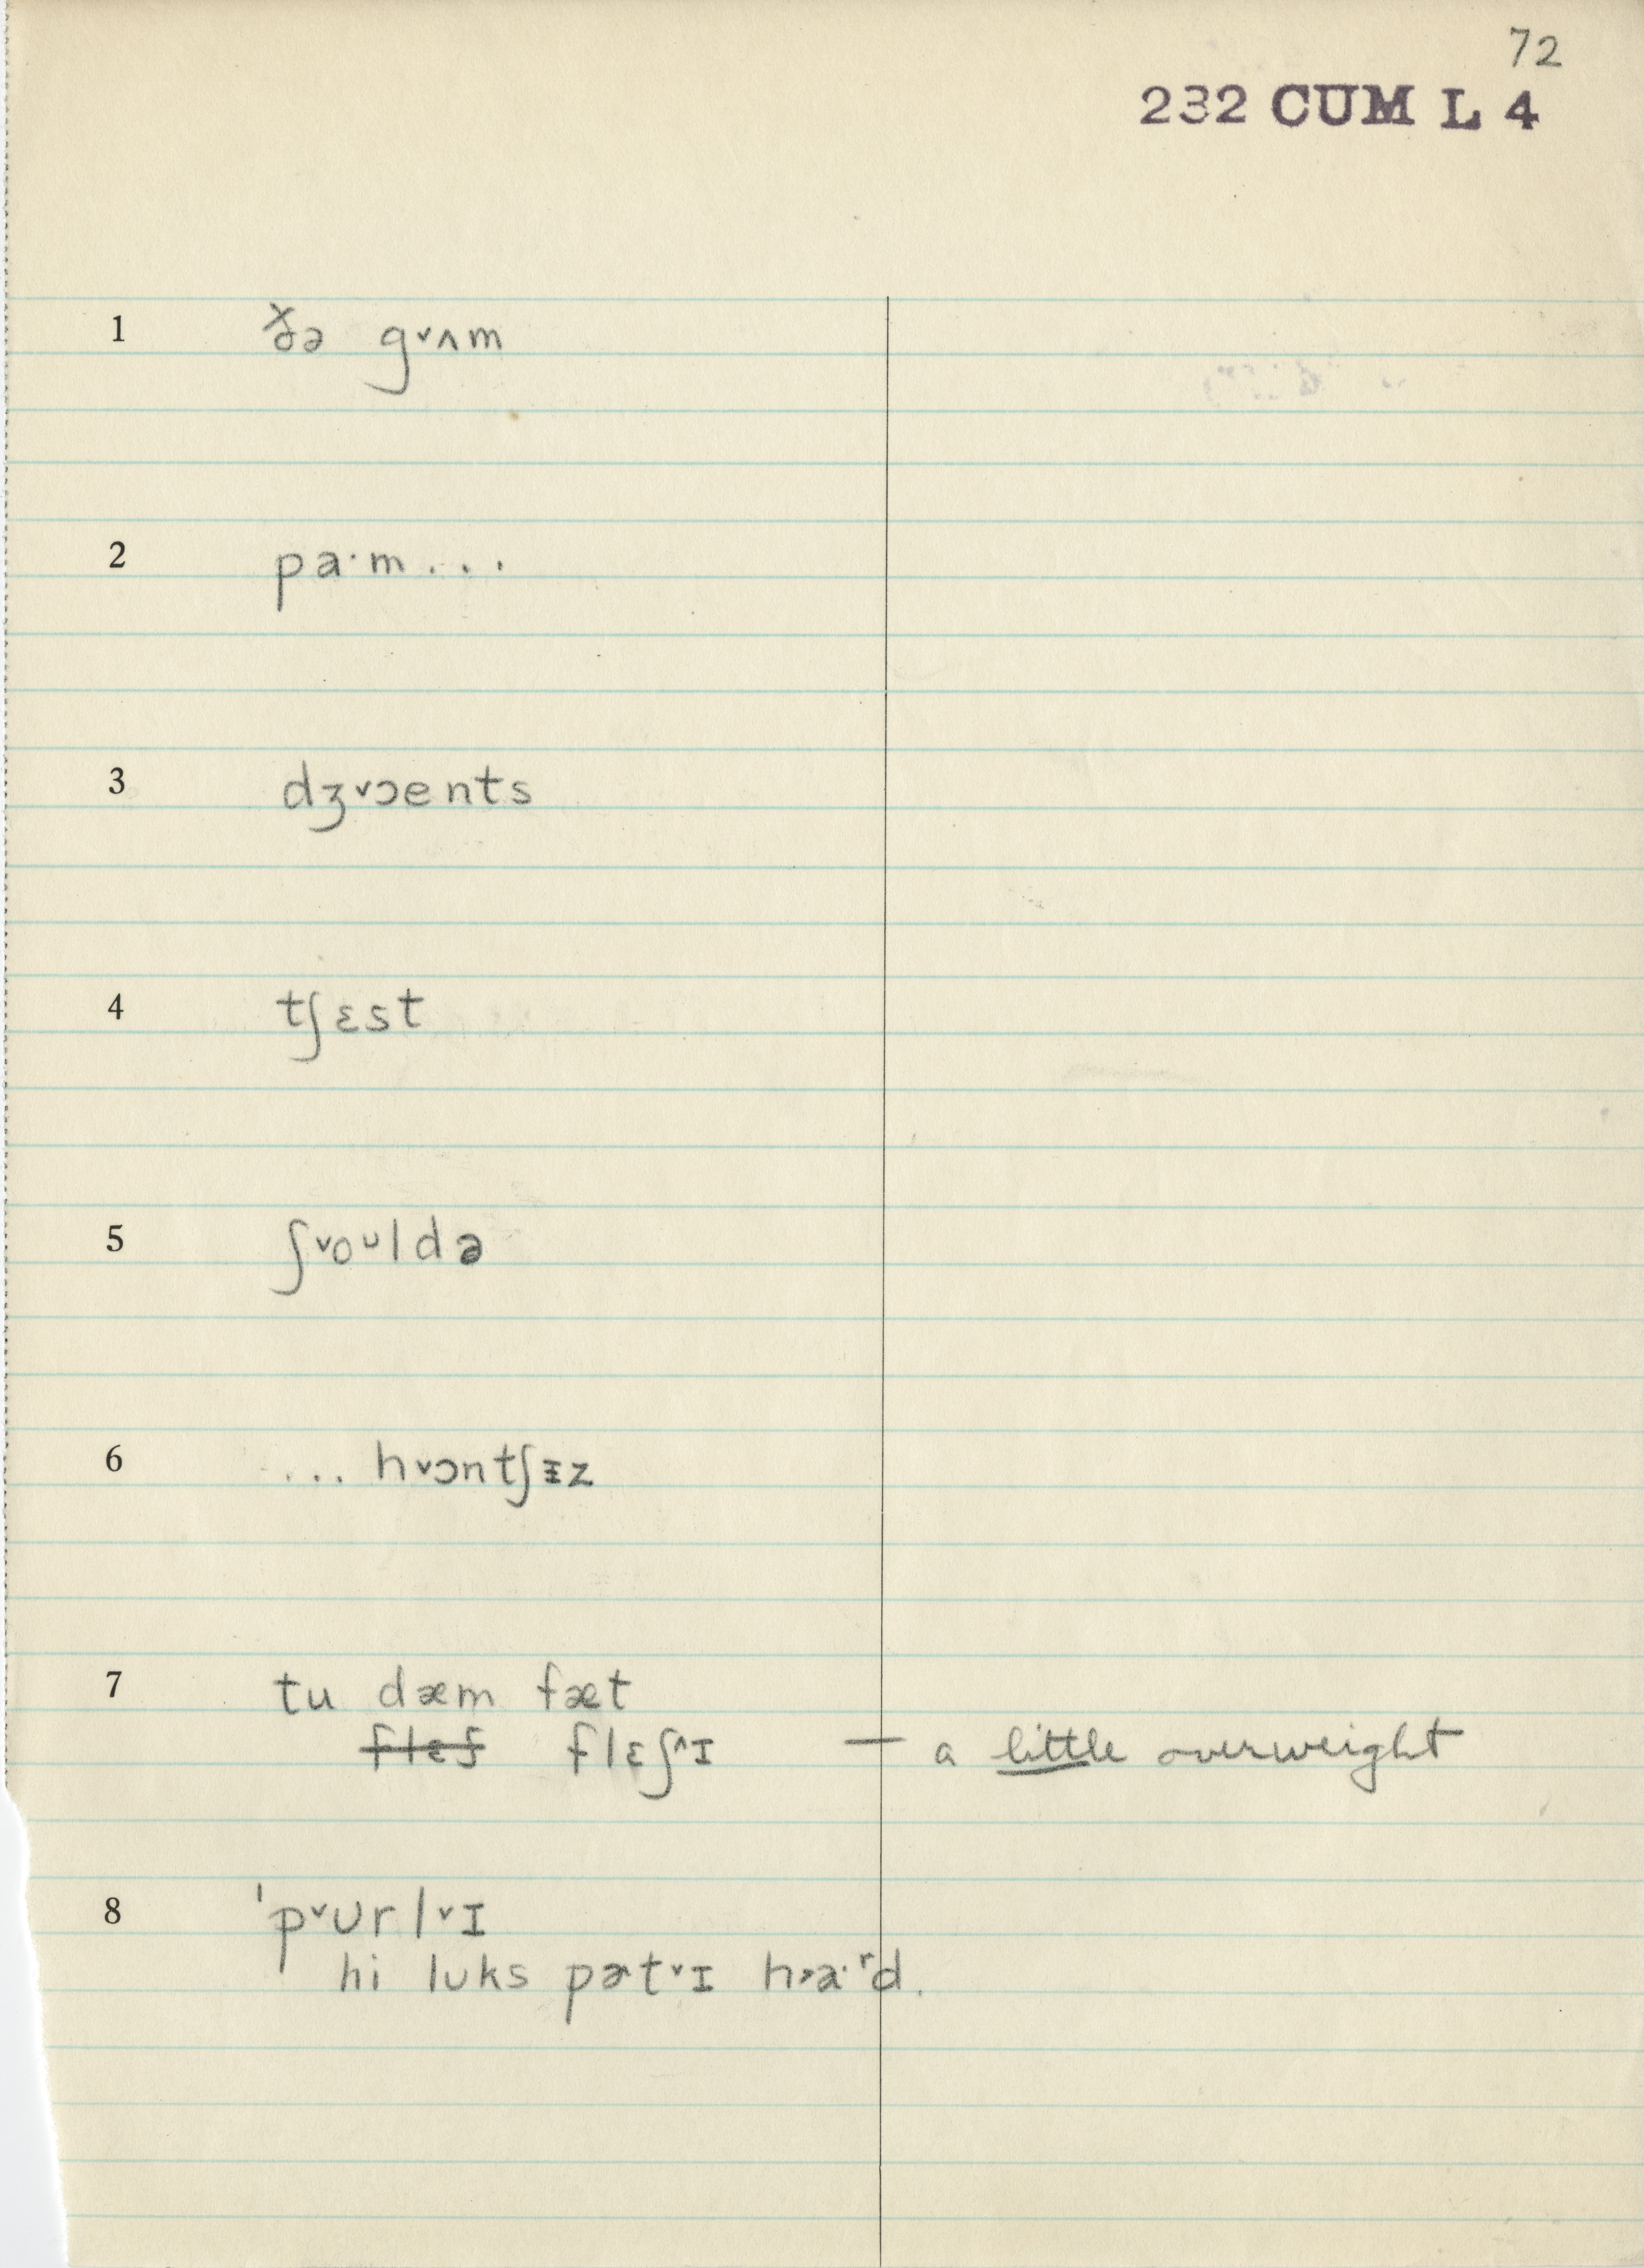 72
232 CUM L 4
1 ð̽ə g˅ʌm
2 pa·m...
3 dʒ˅ɔents
4 tʃɛst
5 ʃ˅oᴜldə
6 ... h˅ɔntʃɪ̵z
7 tu dæm fæt
flɛʃ flɛʃ^ɪ — a little overweight
8 ˈp˅ᴜrl˅ɪ
hi lᴜks pɚt˅ɪ h˃a·ʳd.